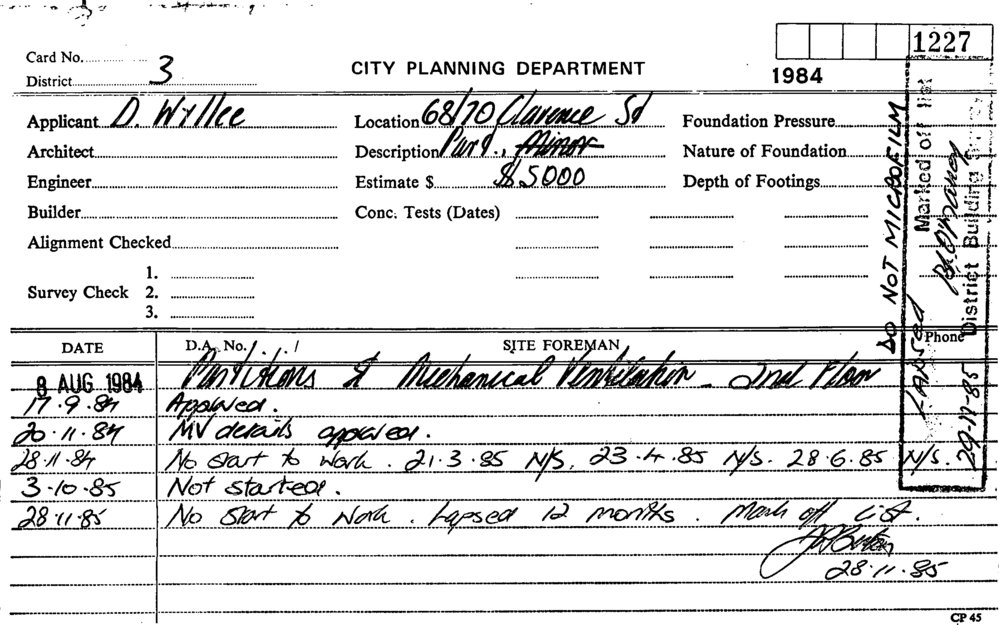 1227
Card No.
District 3
CITY PLANNING DEPARTMENT
1984
Applicant D. Wyllee
Location 68/70 Clarence St
Foundation Pressure
Architect
Description Part., Minor
Nature of Foundation
Engineer
Estimate $ $5000
Depth of Footings
Builder
Conc. Tests (Dates)
Alignment Checked
Survey Check
1.
2.
3.
DO NOT MICROFILM
Marked off list
District Building
LAPSED
29-11-85
DATE
D.A. No. / . /
SITE FOREMAN
Phone
8 AUG 1984 Partitions & Mechanical Ventilation - 2nd Floor
17.9.84 Approved.
20.11.84 MV details approved.
28.11.84 No start to work. 21.3.85 N/S. 23.4.85 N/S. 28.6.85 N/S.
3.10.85 Not started.
28.11.85 No start to work. Lapsed 12 months. Mark off list.
28.11.85
CP 45